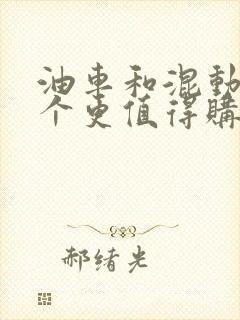 油車和混動
个更值得購
郝绪光